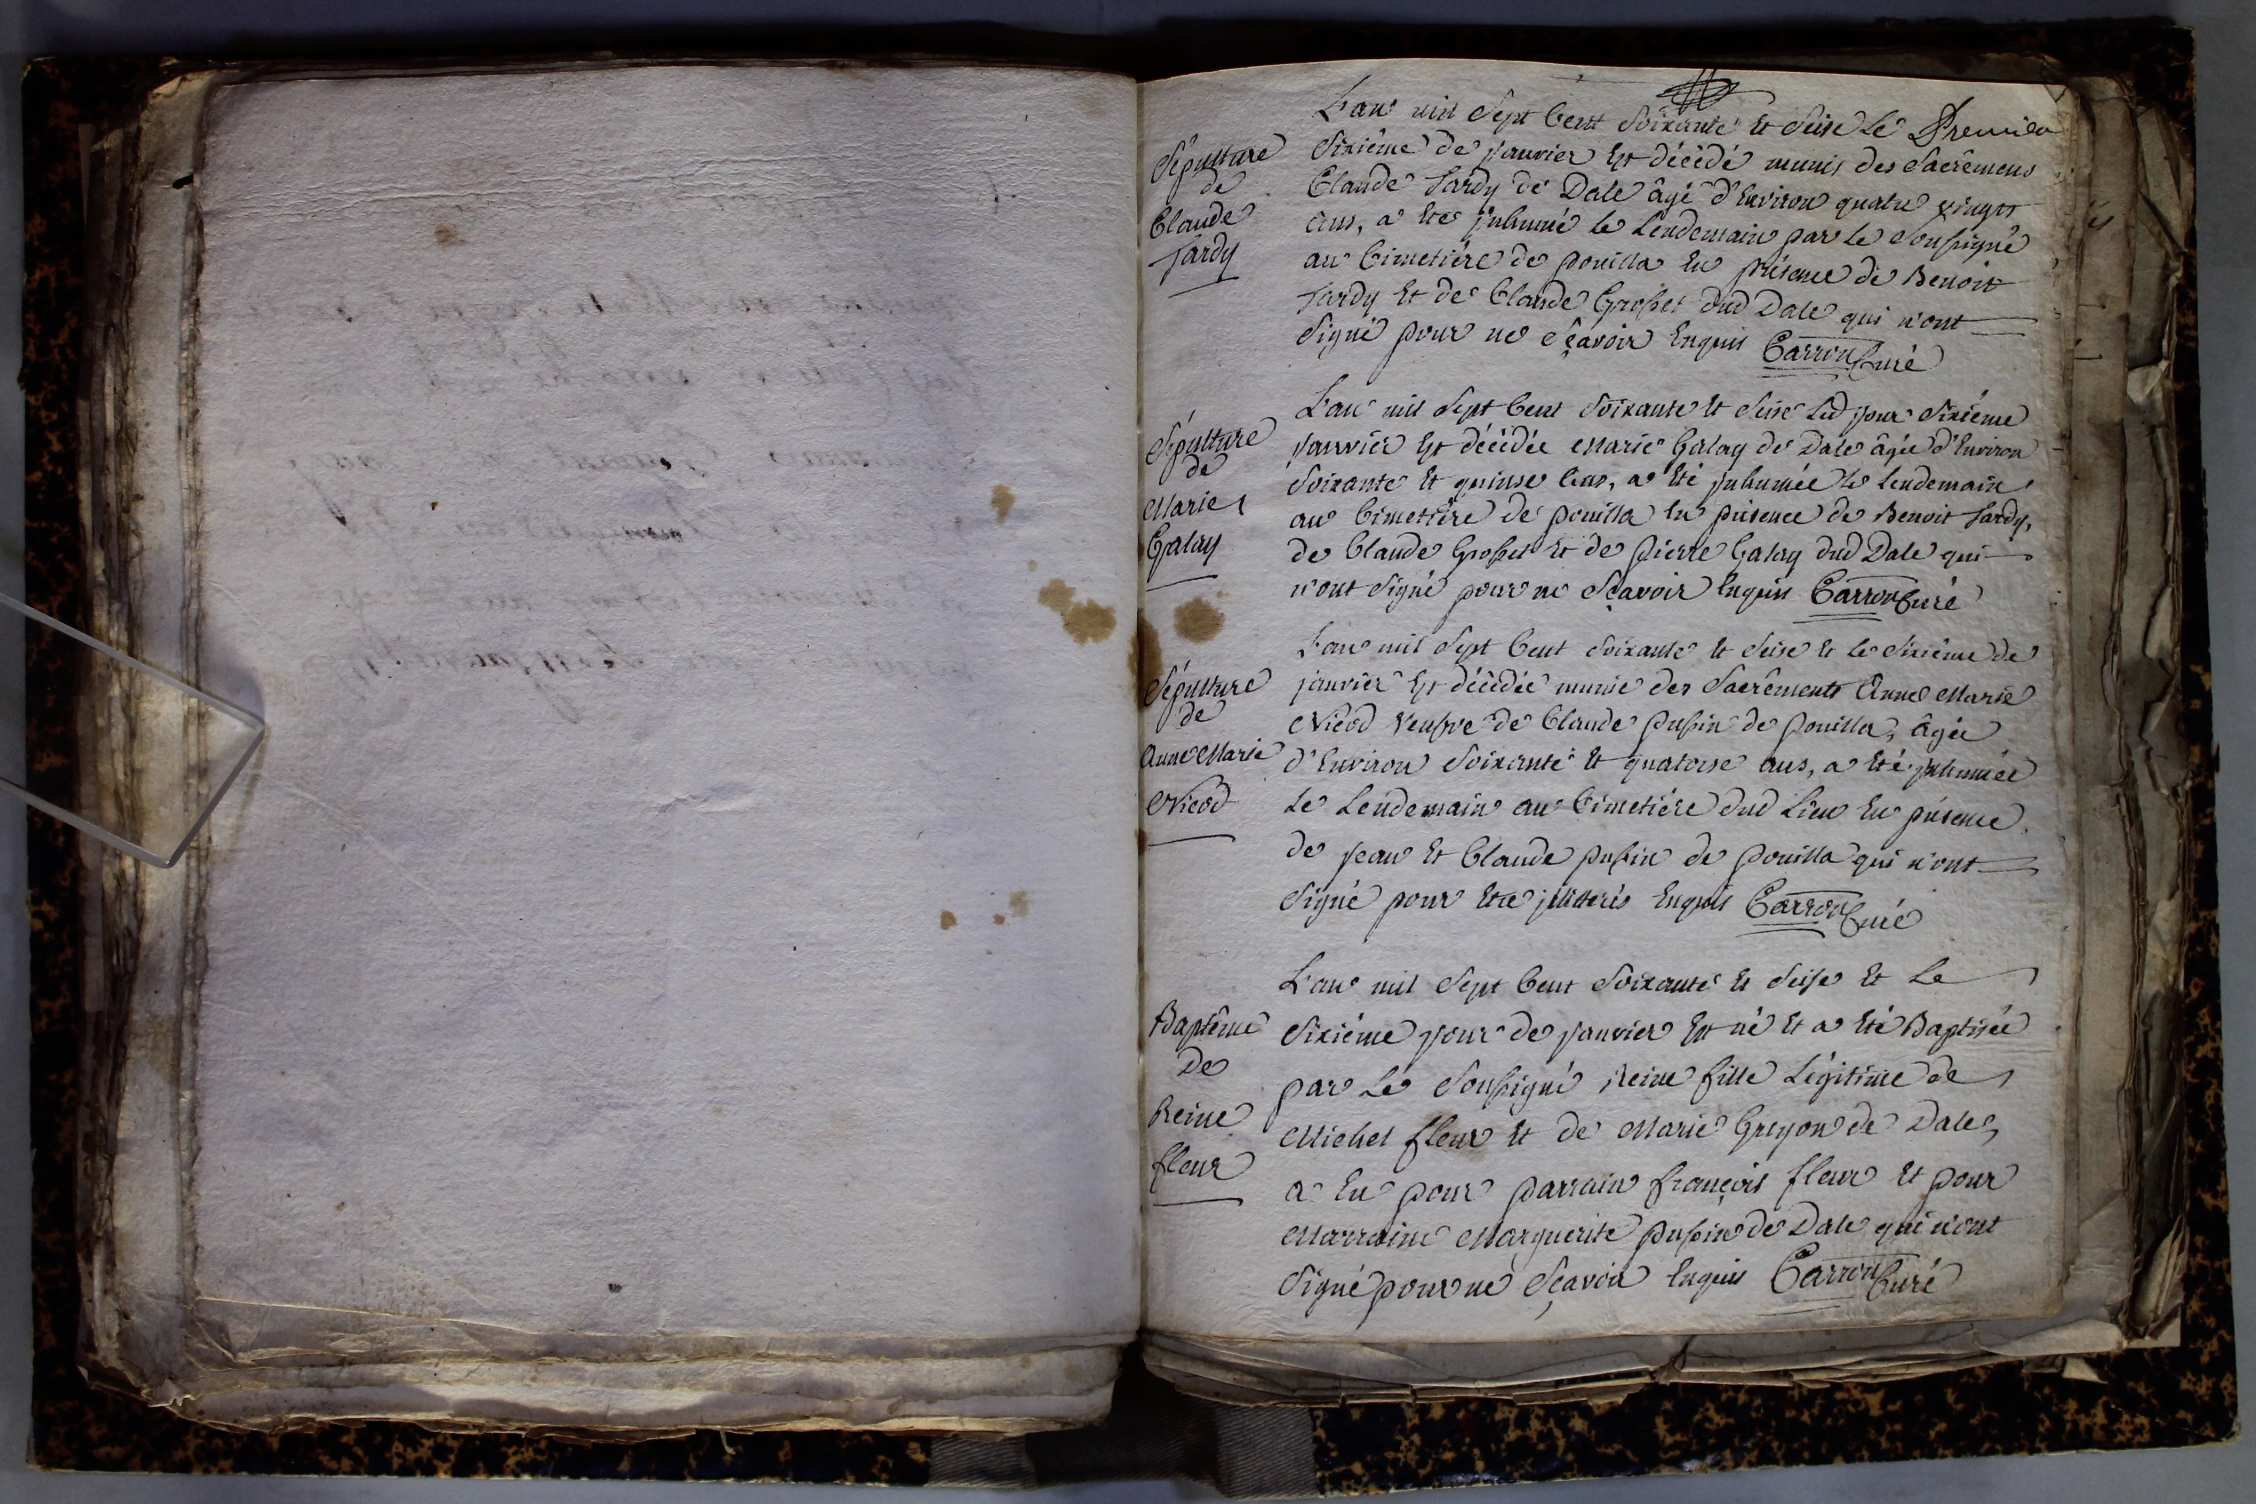 L'an mil Sept Cent Soixante et Seise le Premier
Sixième de janvier est décédé munis des Sacrêmens
Claude Jardy de Dale âgé d'Environ quatre vingts
ans, a été jnhumé le Lendemain par le Soussigné
au Cimetière de pouilla En présence de Benoit
Jardy Et de Claude Grosset dud Dale qui n'ont
Signé pour ne Sçavoir Enquis Carron Curé
Sépulture
de
Claude
Jardy
L'an mil Sept Cent Soixante et Seise led jour Sixième
janvier Est décédée Marie Galay de Dale âgée d'Environ
Soixante Et quinse ans, a été jnhumée le lendemain
au Cimetière de pouilla En présence de Benoit Jardy,
de Claude Grosset Et de Pierre Galay dud Dale qui
n'ont Signé pour ne Sçavoir Enquis Carron Curé
Sépulture
de
Marie
Galay
L'an mil Sept Cent Soixante et Seise Et le Sixième de
janvier Est décédée munie des Sacrêments Anne Marie
Nicod Veufve de Claude pussin de pouilla, âgée
d'Environ Soixante Et quatorse ans, a Eté jnhumée
Le Lendemain au Cimetière dud Lieu En présence
de jean Et Claude pussin de pouilla qui n'ont
Signé pour Etre jllitterés Enquis Carron Curé
Sépulture
de
Anne Marie
Nicod
L'an mil Sept Cent Soixante Et Seise Et Le
Sixième jour de janvier Est né Et a Eté Baptisée
par Le Soussigné Reine fille Légitime de
Michel fleur Et de Marie Greyon de Dale,
a Eu pour parrain françois fleur Et pour
Marraine Marguerite pussin de Dale qui n'ont
Signé pour ne Sçavoir Enquis Carron Curé
Baptême
De
Reine
fleur